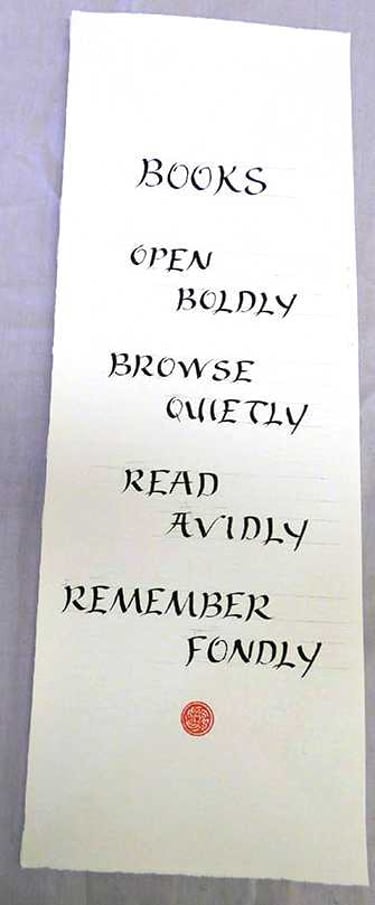 BOOKS
OPEN
BOLDLY
BROWSE
QUIETLY
READ
AVIDLY
REMEMBER
FONDLY